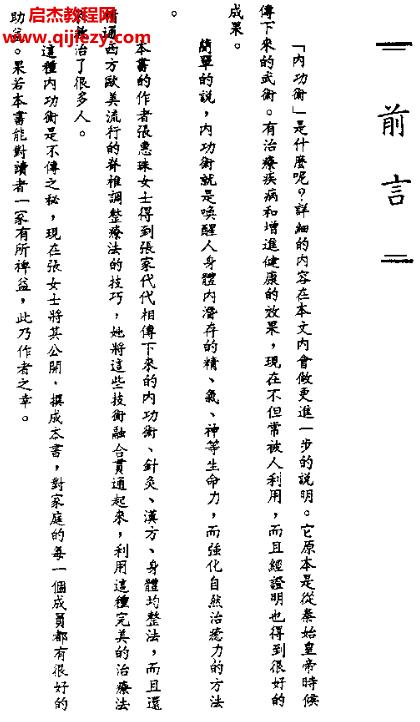 启杰教程网
www.qijiezy.com
前言
「內功術」是什麼呢?詳細的內容在本文內會做更進一步的說明。它原本是從秦始皇帝時候
傳下來的武術。有治療疾病和增進健康的效果,現在不但常被人利用,而且經證明也得到很好的
成果。
簡單的說,內功術就是喚醒人身體內潛存的精、氣、神等生命力,而強化自然治癒力的方法
。
本書的作者張惠珠女士得到張家代代相傳下來的內功術、針灸、漢方、身體均整法,而且還
通西方歐美流行的脊椎調整療法的技巧,她將這些技術融合貫通起來,利用這種完美的治療法
治了很多人。
這種內功術是不傳之秘,現在張女士將其公開,撰成本書,對家庭的每一個成員都有很好的
助益。果若本書能對讀者一家有所裨益,此乃作者之幸。